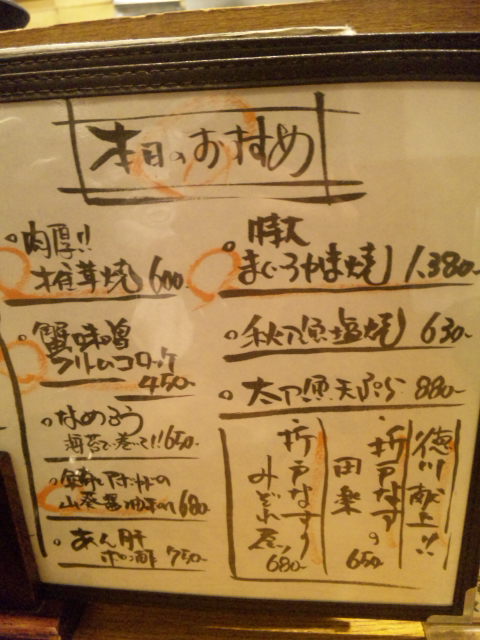 本日のおすすめ
肉厚!!
椎茸焼 600
蟹味噌
クリームコロッケ
450-
なめろう
海苔で巻いて!! 650-
鮪とアボカドの
山葵醤油 680-
あん肝
ポン酢 750-
特大
まぐろかま焼 1,380-
秋刀魚塩焼 630-
太刀魚天ぷら 880-
徳川献上!!
折戸なすの
田楽 650-
折戸なすの
みぞれ煮 680-